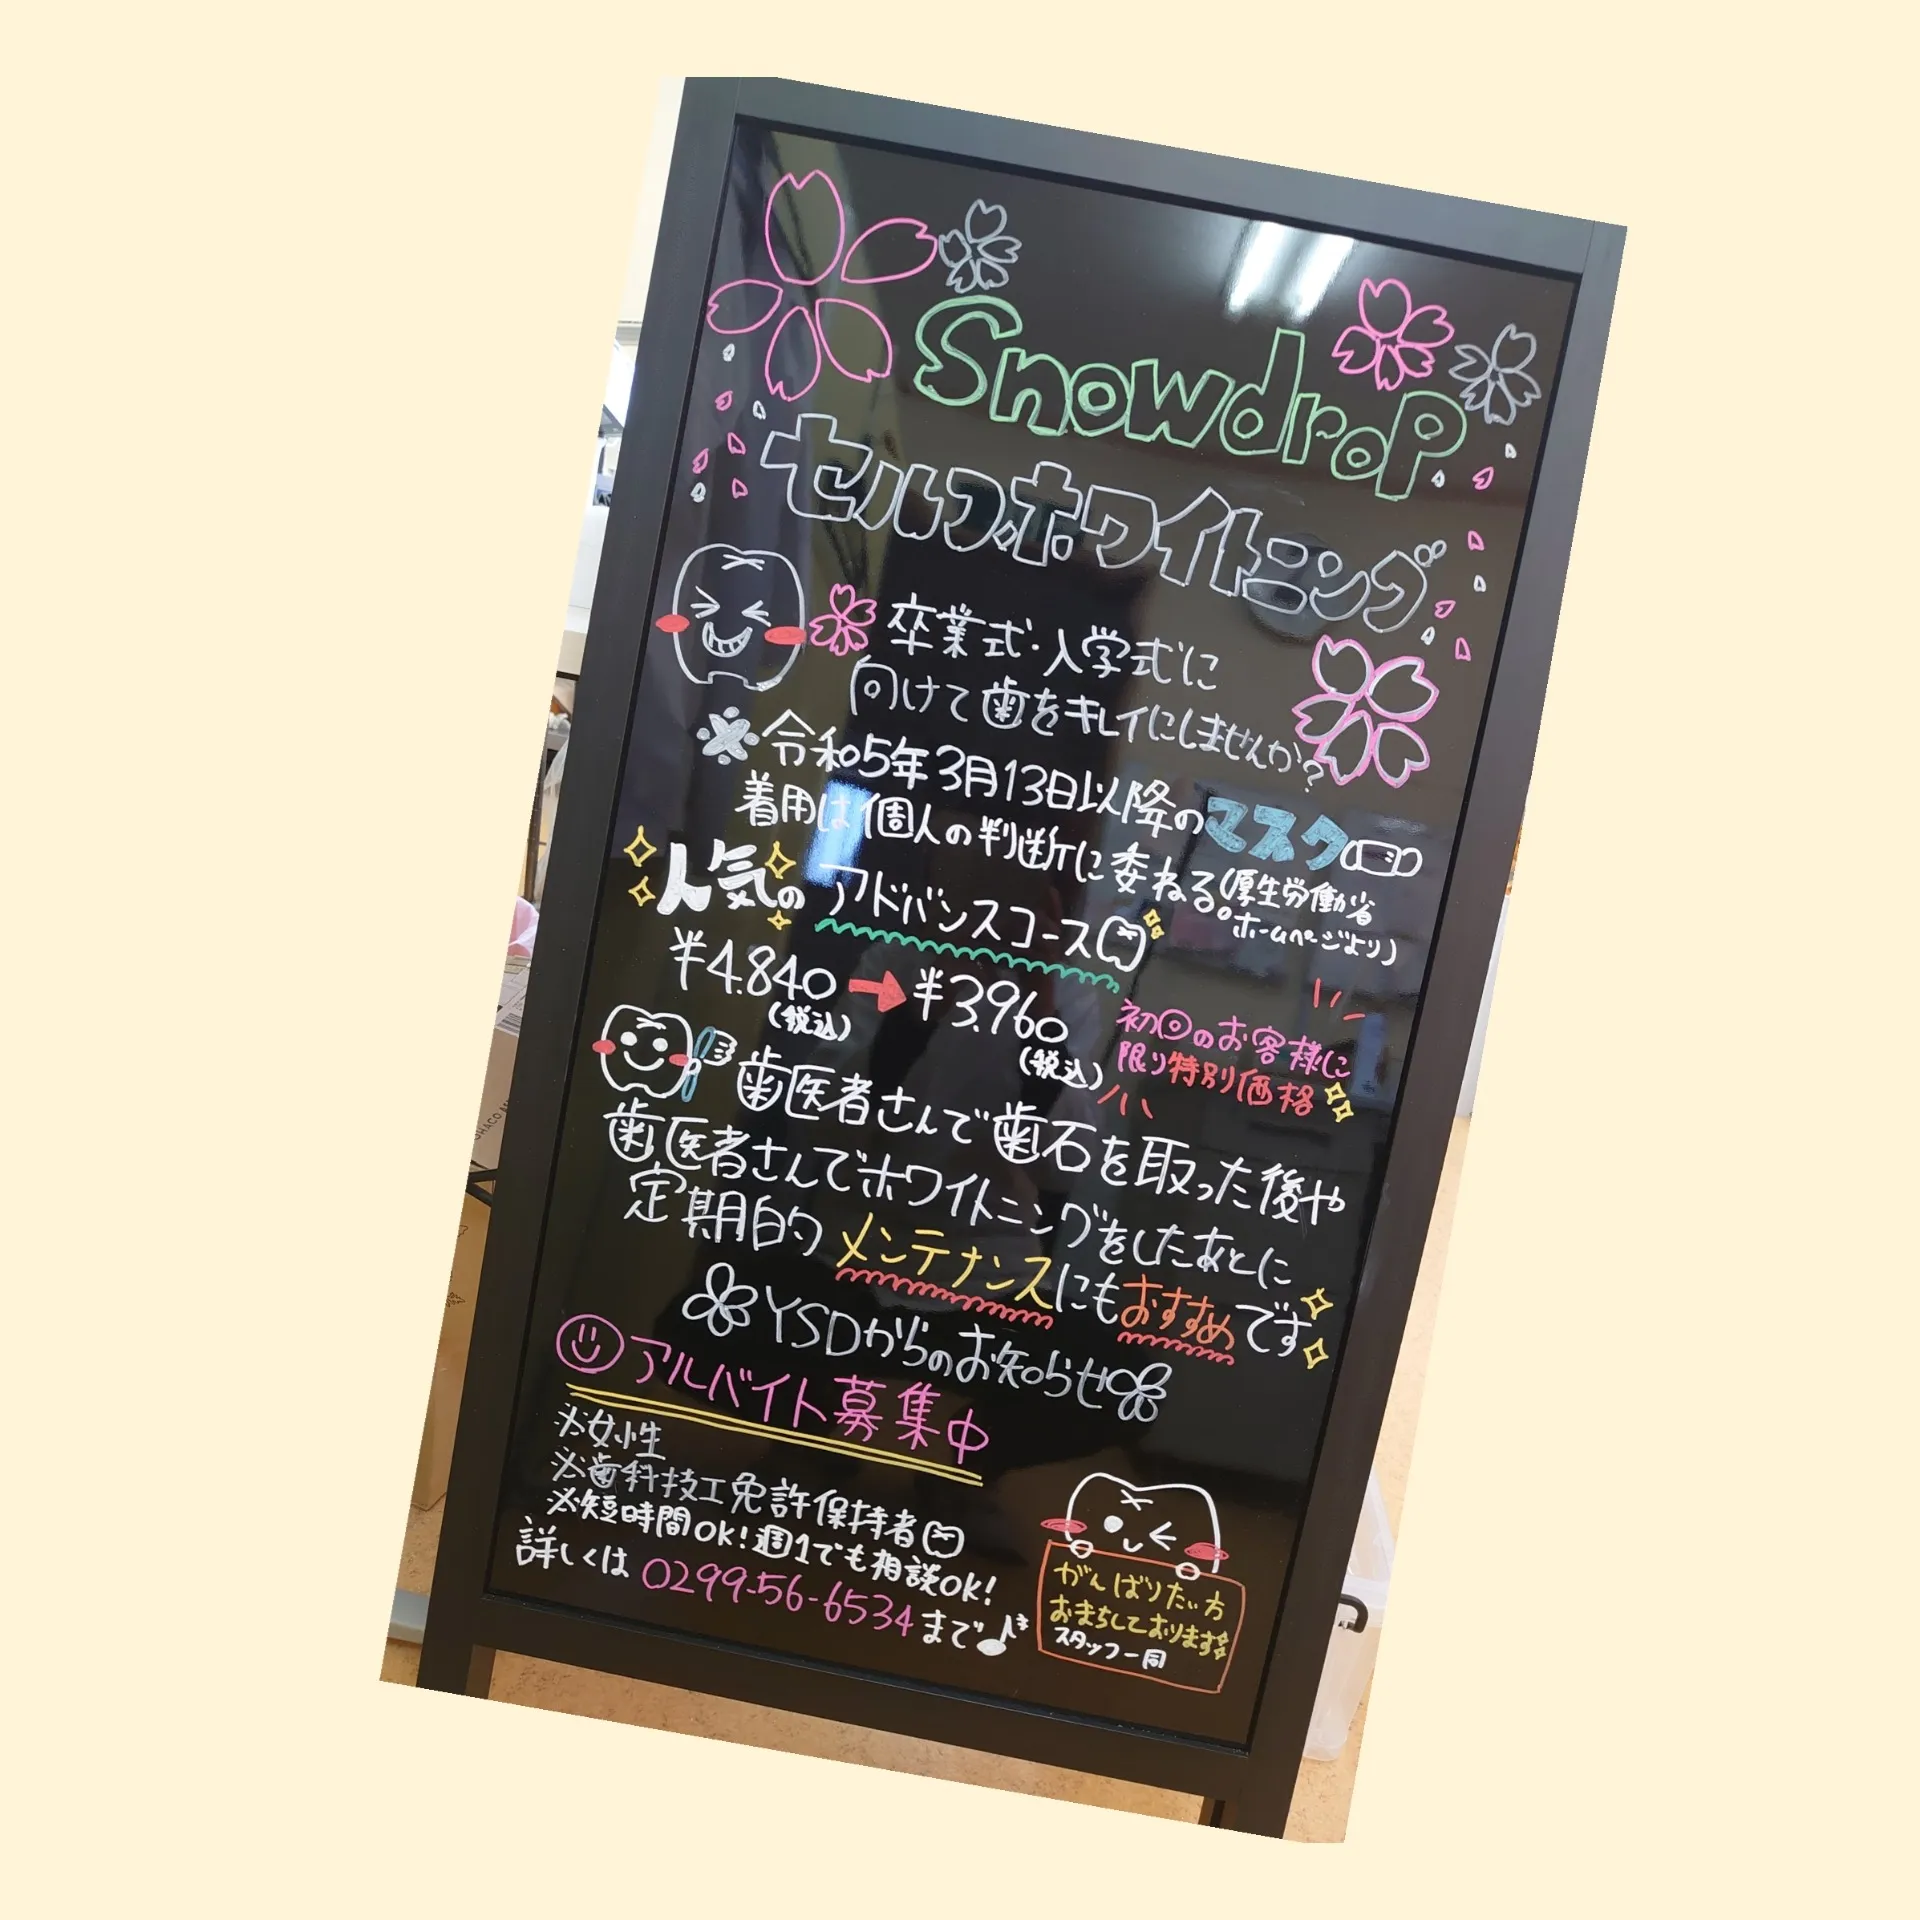 Snowdrop
セルフホワイトニング
卒業式・入学式に
向けて歯をキレイにしませんか?
※令和5年3月13日以降のマスク
着用は個人の判断に委ねる。(厚生労働省
ホームページより)
人気のアドバンスコース
¥4.840(税込)→¥3.960(税込)
初回のお客様に
限り特別価格
歯医者さんで歯石を取った後や
歯医者さんでホワイトニングをしたあとに
定期的メンテナンスにもおすすめです
YSDからのお知らせ
アルバイト募集中
※女性
※歯科技工免許保持者
※短時間OK!週1でも相談OK!
詳しくは0299-56-6534まで♪
がんばりたい方
おまちしております
スタッフ一同